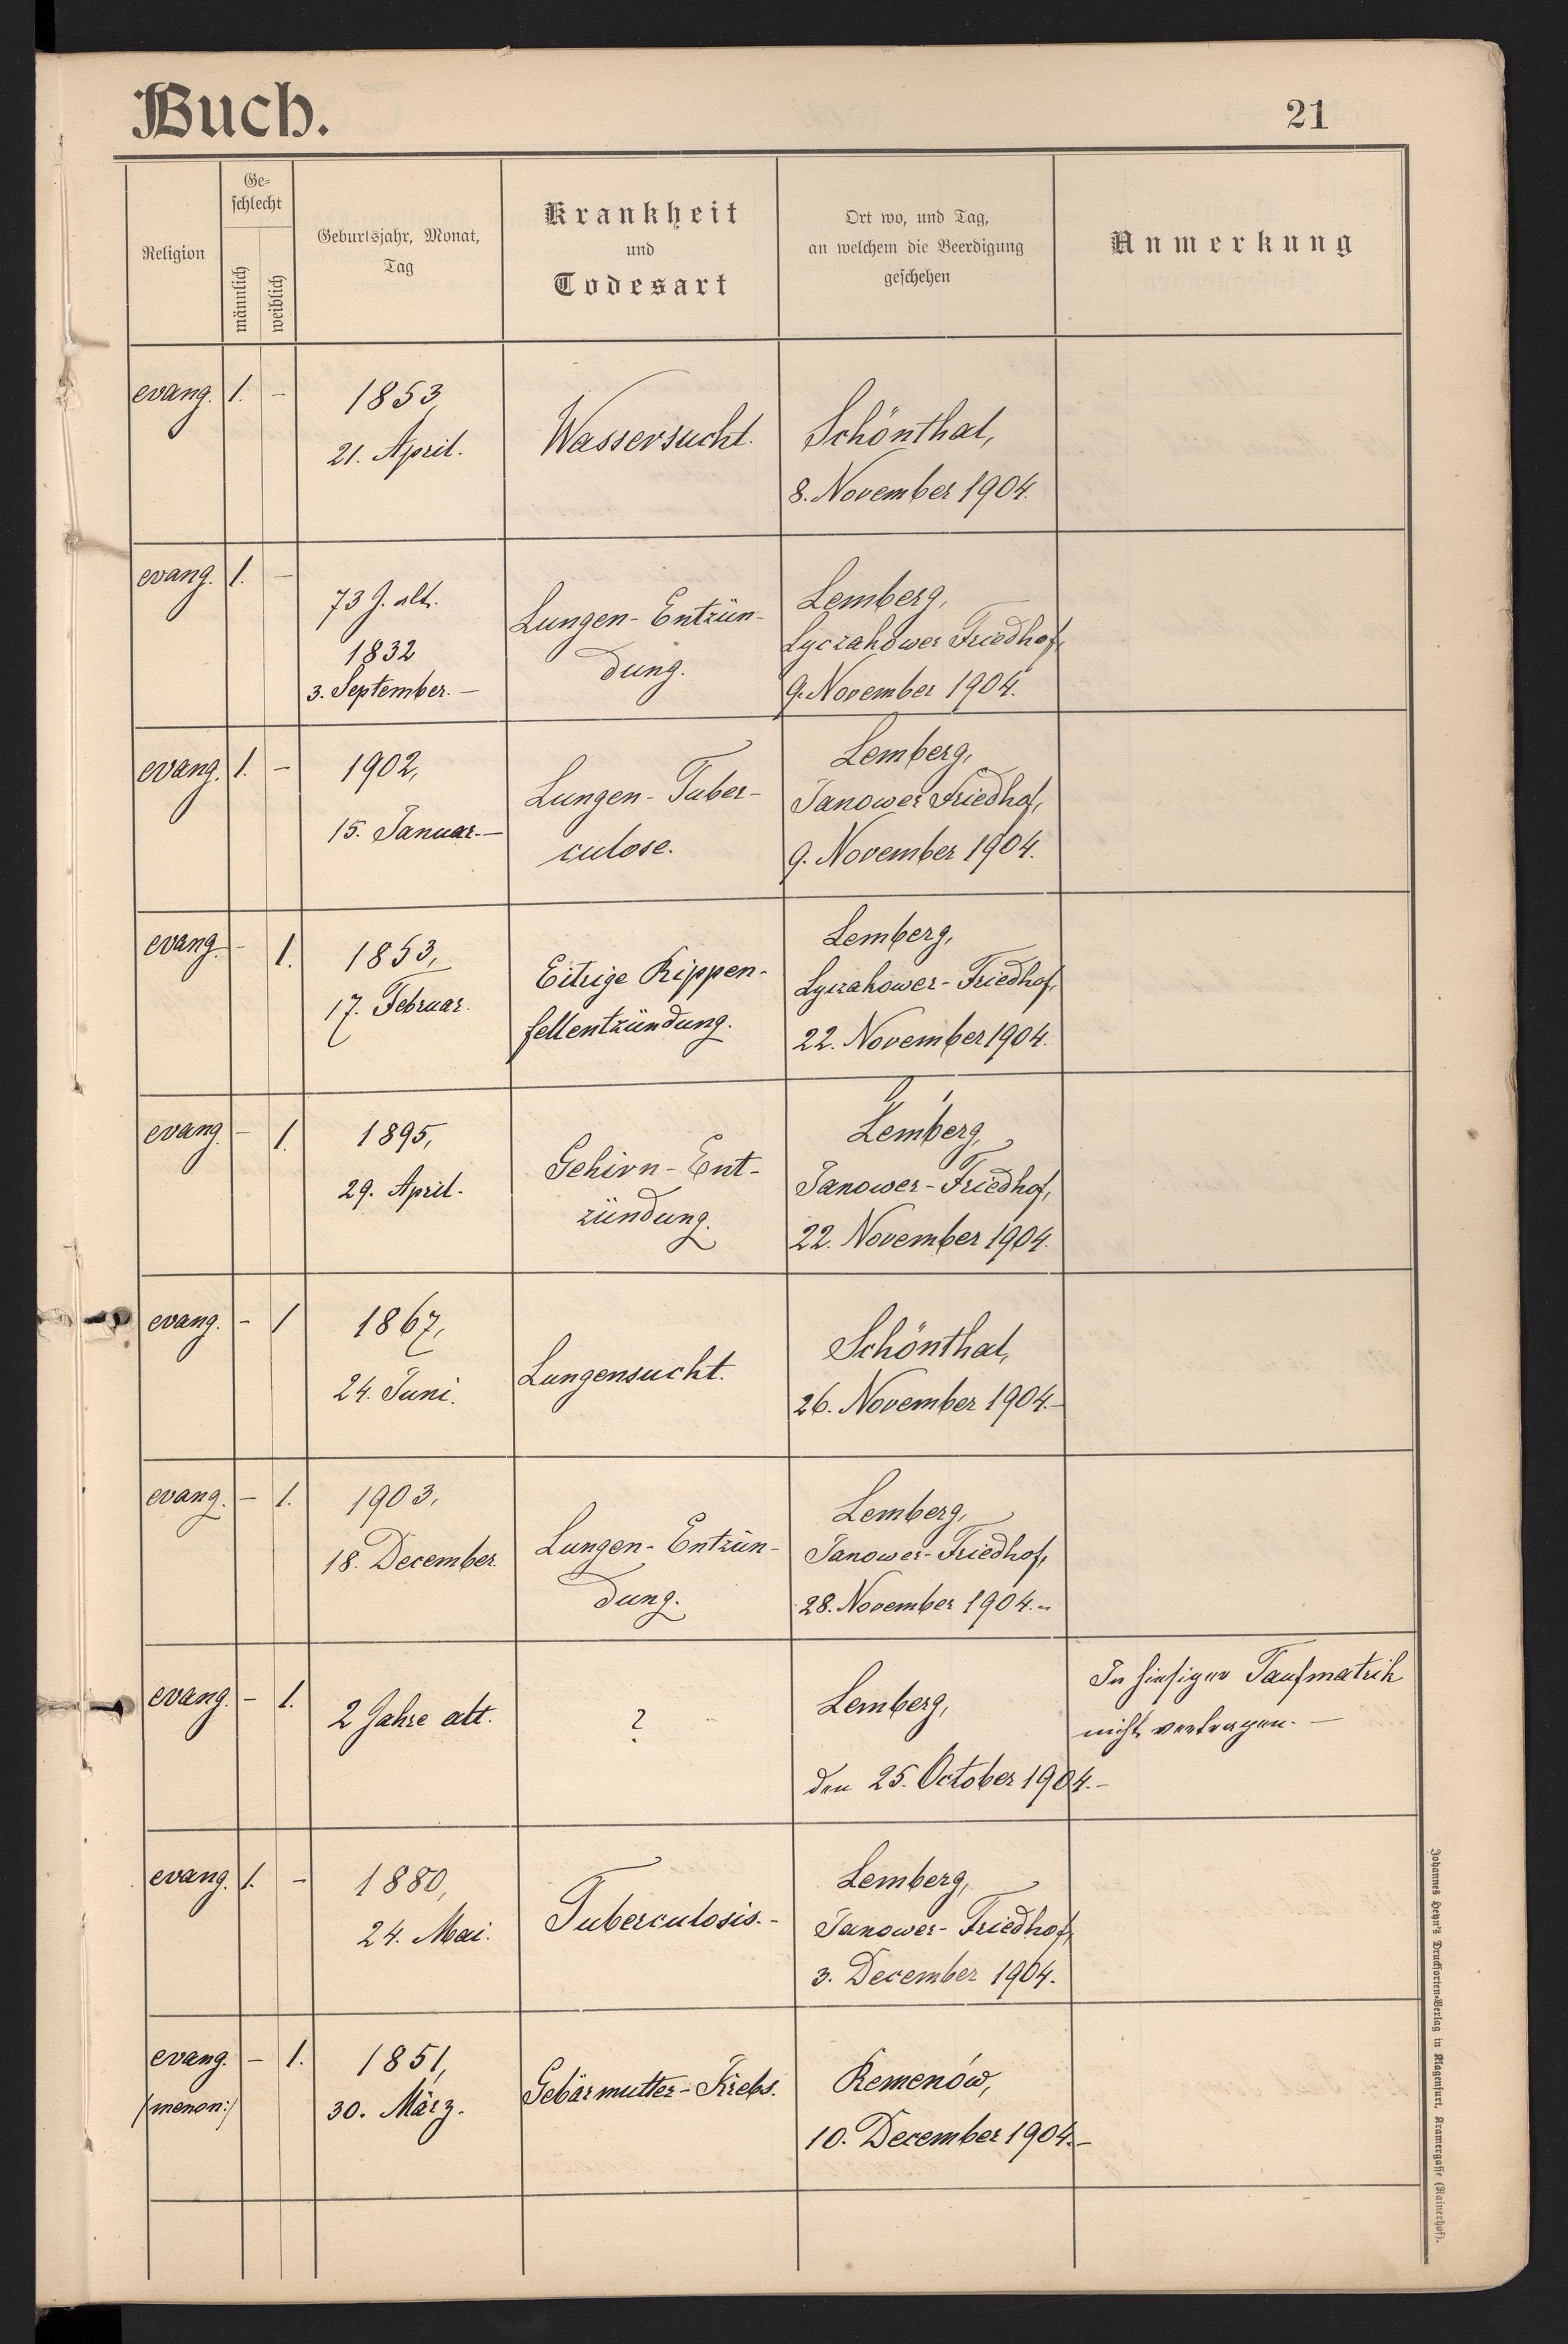 Buch.
21
Religion
Ge-
schlecht
männlich
weiblich
Geburtsjahr, Monat,
Tag
Krankheit
und
Todesart
Ort wo, und Tag,
an welchem die Beerdigung
geschehen
Anmerkung
evang. 1. -
1853,
21. April.
Wassersucht.
Schönthal,
8. November 1904.
evang. 1. -
73 J. alt.
1832
3. September. -
Lungen-Entzün-
dung.
Lemberg,
Lyczakower Friedhof,
9. November 1904.
evang. 1. -
1902,
15. Januar. -
Lungen-Tuber-
culose.
Lemberg,
Janower Friedhof,
9. November 1904.
evang. - 1.
1853,
17. Februar.
Eitrige Rippen-
fellentzündung.
Lemberg,
Lyczakower-Friedhof,
22. November 1904.
evang. - 1.
1895,
29. April.
Gehirn-Ent-
zündung.
Lemberg,
Janower-Friedhof,
22. November 1904.
evang. - 1
1867,
24. Juni.
Lungensucht.
Schönthal,
26. November 1904. -
evang. - 1.
1903,
18. December.
Lungen-Entzün-
dung.
Lemberg,
Janower-Friedhof,
28. November 1904. -
evang. - 1.
2 Jahre alt.
?
Lemberg,
den 25. October 1904. -
In hiesiger Taufmatrik
nicht vertragen. -
evang. 1. -
1880,
24. Mai.
Tuberculosis. -
Lemberg,
Janower-Friedhof,
3. December 1904.
evang. - 1.
/menon:/
1851,
30. März.
Gebärmutter-Krebs.
Remenów,
10. December 1904. -
Johannes Heyn's Drucksorten-Verlag in Klagenfurt, Kramergasse (Rainerhof).